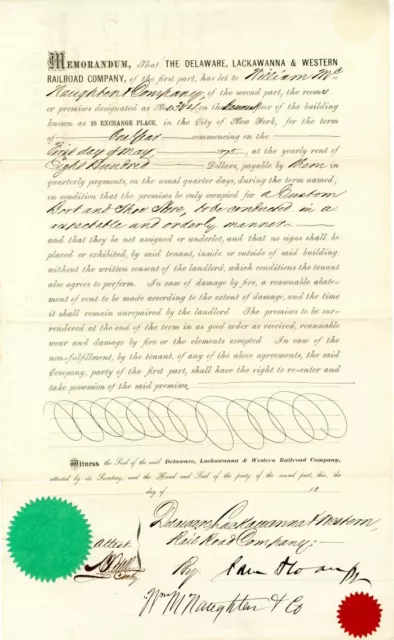 MEMORANDUM, That THE DELAWARE, LACKAWANNA & WESTERN
RAILROAD COMPANY, of the first part, has let to William Mc
Naughten & Company, of the second part, the rooms
or premises designated as No. 3 & 4 on the floor of the building
known as 26 EXCHANGE PLACE, in the City of New York, for the term
of One Year commencing on the
First day of May 1875, at the yearly rent of
Eight Hundred Dollars, payable by them in
quarterly payments, on the usual quarter days, during the term named;
on condition that the premises be only occupied for a Custom
Boot and Shoe Store, to be conducted in a
respectable and orderly manner
and that they be not assigned or underlet, and that no signs shall be
placed or exhibited, by said tenant, inside or outside of said building,
without the written consent of the landlord, which conditions the tenant
also agrees to perform. In case of damage by fire, a reasonable abate-
ment of rent to be made according to the extent of damage, and the time
it shall remain unrepaired by the landlord The premises to be sur-
rendered at the end of the term in as good order as received, reasonable
wear and damage by fire or the elements excepted In case of the
non-fulfillment, by the tenant, of any of the above agreements, the said
Company, party of the first part, shall have the right to re-enter and
take possession of the said premises,
Witness the Seal of the said Delaware, Lackawanna & Western Railroad Company,
attested by its Secretary, and the Hand and Seal of the party of the second part, this, the
day of 18
Delaware Lackawanna & Western
Rail Road Company:
Attest
By
Wm McNaughten & Co